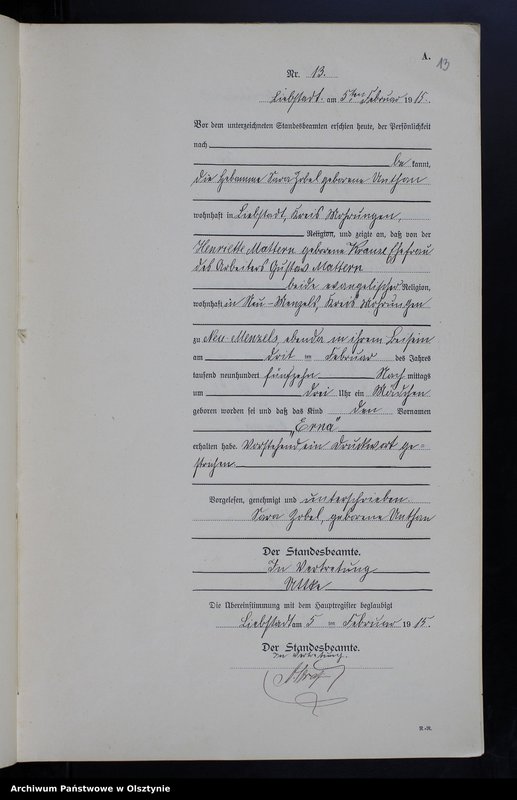 A.
13
Nr. 13.
Liebstadt am 5ten Februar 1915.
Vor dem unterzeichneten Standesbeamten erschien heute, der Persönlichkeit
nach
be kannt,
die Hebamme Sara Zobel geborene Unthan
wohnhaft in Liebstadt, Kreis Mohrungen,
Religion, und zeigte an, daß von der
Henriette Mattern geborene Ehefrau
des Arbeiters Gustav Mattern
beide evangelischer Religion,
wohnhaft in Neu-Menzels, Kreis Mohrungen
zu Neu-Menzels, ebenda in ihrem Beisein
am drit en Februar des Jahres
tausend neunhundert fünfzehn Nach mittags
um drei Uhr ein Mädchen
geboren worden sei und daß das Kind den Vornamen
"Erna"
erhalten habe. Vorstehend ein Druckwort ge-
strichen.
Vorgelesen, genehmigt und unterschrieben
Sara Zobel, geborene Unthan
Der Standesbeamte.
In Vertretung
Die Übereinstimmung mit dem Hauptregister beglaubigt
Liebstadt am 5 ten Februar 1915.
Der Standesbeamte.
In Vertretung.
Archiwum Państwowe w Olsztynie